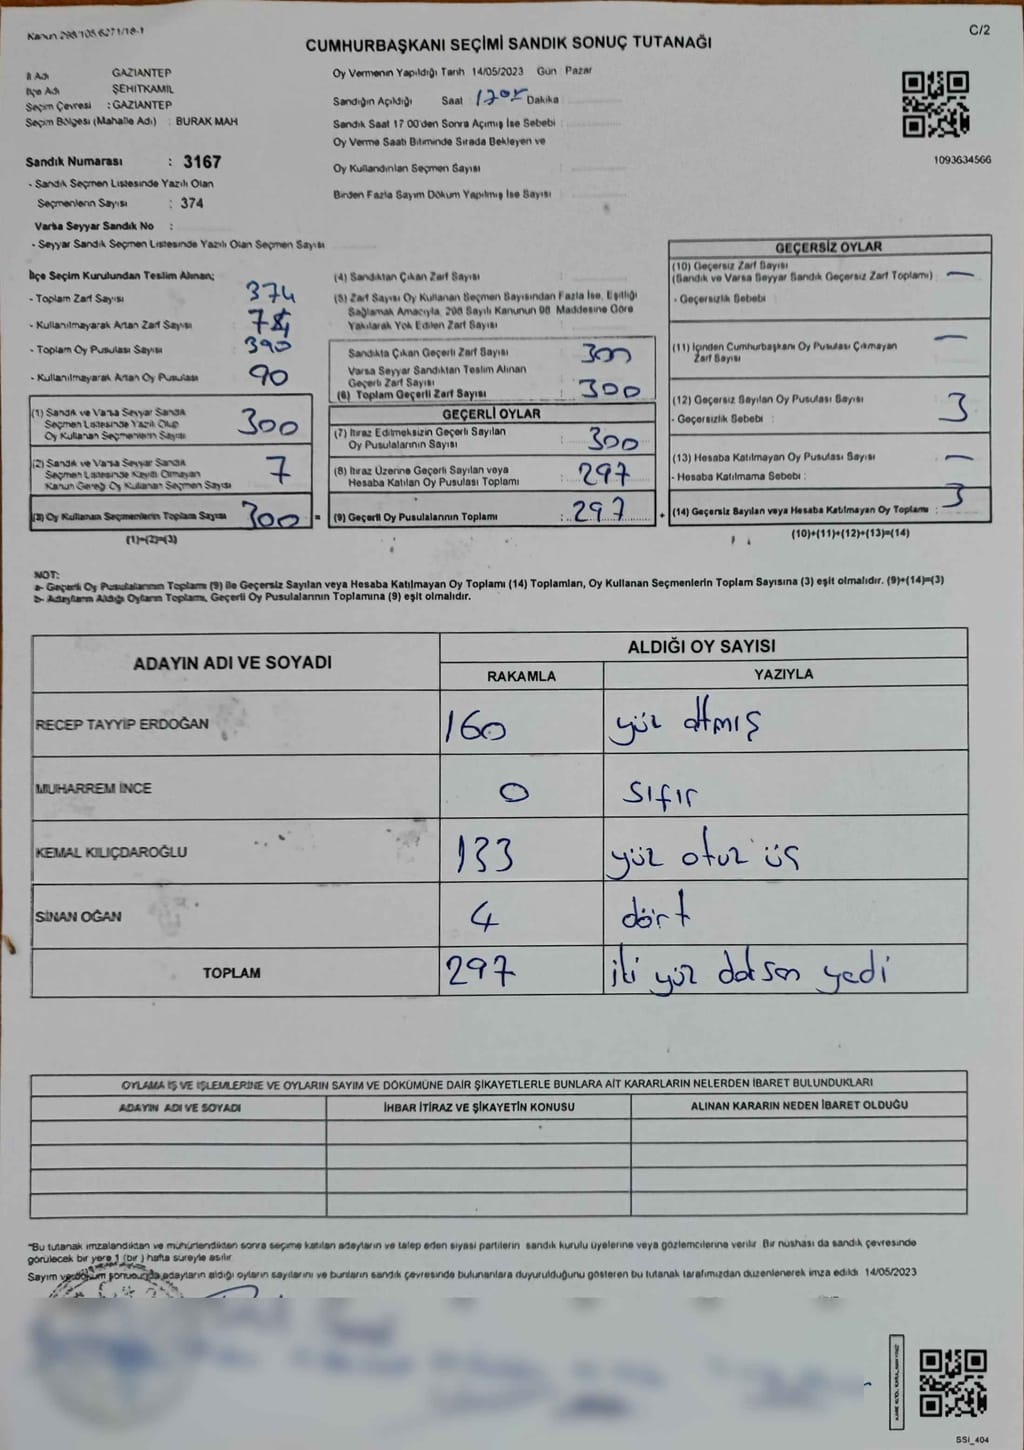 Kanun 298/105.6271/18-1
C/2
CUMHURBAŞKANI SEÇİMİ SANDIK SONUÇ TUTANAĞI
İl Adı GAZİANTEP
İlçe Adı ŞEHİTKAMİL
Seçim Çevresi : GAZİANTEP
Seçim Bölgesi (Mahalle Adı) : BURAK MAH
Oy Vermenin Yapıldığı Tarih 14/05/2023 Gün Pazar
Sandığın Açıldığı Saat 1705 Dakika
Sandık Saat 17 00'den Sonra Açımış İse Sebebi :
Oy Verme Saati Bitiminde Sırada Bekleyen ve
Oy Kullandırılan Seçmen Sayısı :
Birden Fazla Sayım Döküm Yapılmış İse Sayısı :
1093634566
Sandık Numarası : 3167
- Sandık Seçmen Listesinde Yazılı Olan
Seçmenlerin Sayısı : 374
Varsa Seyyar Sandık No :
- Seyyar Sandık Seçmen Listesinde Yazılı Olan Seçmen Sayısı
İlçe Seçim Kurulundan Teslim Alınan;
- Toplam Zarf Sayısı 374
- Kullanılmayarak Artan Zarf Sayısı 74
- Toplam Oy Pusulası Sayısı 390
- Kullanılmayarak Artan Oy Pusulası 90
(1) Sandık ve Varsa Seyyar Sandık
Seçmen Listesinde Yazılı Olup
Oy Kullanan Seçmenlerin Sayısı 300
(2) Sandık ve Varsa Seyyar Sandık
Seçmen Listesinde Kayıtlı Olmayan
Kanun Gereği Oy Kullanan Seçmen Sayısı 7
(3) Oy Kullanan Seçmenlerin Toplam Sayısı 300 =
(1)+(2)=(3)
(4) Sandıktan Çıkan Zarf Sayısı :
(5) Zarf Sayısı Oy Kullanan Seçmen Sayısından Fazla İse, Eşitliği
Sağlamak Amacıyla, 298 Sayılı Kanunun 98 Maddesine Göre
Yakılarak Yok Edilen Zarf Sayısı
Sandıkta Çıkan Geçerli Zarf Sayısı 300
Varsa Seyyar Sandıktan Teslim Alınan
Geçerli Zarf Sayısı
(6) Toplam Geçerli Zarf Sayısı 300
GEÇERLİ OYLAR
(7) İtiraz Edilmeksizin Geçerli Sayılan
Oy Pusulalarının Sayısı : 300
(8) İtiraz Üzerine Geçerli Sayılan veya
Hesaba Katılan Oy Pusulası Toplamı : 297
(9) Geçerli Oy Pusulalarının Toplamı : 297 +
GEÇERSİZ OYLAR
(10) Geçersiz Zarf Sayısı
(Sandık ve Varsa Seyyar Sandık Geçersiz Zarf Toplamı) : —
- Geçersizlik Sebebi :
(11) İçinden Cumhurbaşkanı Oy Pusulası Çıkmayan
Zarf Sayısı —
(12) Geçersiz Sayılan Oy Pusulası Sayısı : 3
- Geçersizlik Sebebi :
(13) Hesaba Katılmayan Oy Pusulası Sayısı : —
- Hesaba Katılmama Sebebi :
(14) Geçersiz Sayılan veya Hesaba Katılmayan Oy Toplamı : 3
(10)+(11)+(12)+(13)=(14)
NOT:
a- Geçerli Oy Pusulalarının Toplamı (9) ile Geçersiz Sayılan veya Hesaba Katılmayan Oy Toplamı (14) Toplamları, Oy Kullanan Seçmenlerin Toplam Sayısına (3) eşit olmalıdır. (9)+(14)=(3)
b- Adayların Aldığı Oyların Toplamı, Geçerli Oy Pusulalarının Toplamına (9) eşit olmalıdır.
ADAYIN ADI VE SOYADI ALDIĞI OY SAYISI
RAKAMLA YAZIYLA
RECEP TAYYİP ERDOĞAN 160 yüz altmış
MUHARREM İNCE 0 sıfır
KEMAL KILIÇDAROĞLU 133 yüz otuz üç
SİNAN OĞAN 4 dört
TOPLAM 297 iki yüz doksan yedi
OYLAMA İŞ VE İŞLEMLERİNE VE OYLARIN SAYIM VE DÖKÜMÜNE DAİR ŞİKAYETLERLE BUNLARA AİT KARARLARIN NELERDEN İBARET BULUNDUKLARI
ADAYIN ADI VE SOYADI İHBAR İTİRAZ VE ŞİKAYETİN KONUSU ALINAN KARARIN NEDEN İBARET OLDUĞU
"Bu tutanak imzalandıktan ve mühürlendikten sonra seçime katılan adayların ve talep eden siyasi partilerin sandık kurulu üyelerine veya gözlemcilerine verilir. Bir nüshası da sandık çevresinde
görülecek bir yere 1 (bir ) hafta süreyle asılır
Sayım ve döküm sonucunda adayların aldığı oyların sayılarını ve bunların sandık çevresinde bulunanlara duyurulduğunu gösteren bu tutanak tarafımızdan düzenlenerek imza edildi 14/05/2023
SSI_404